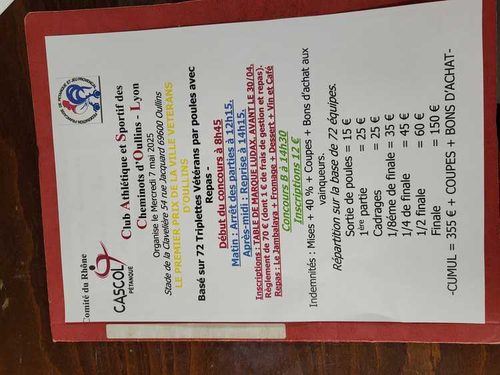 Comité du Rhône
CASCOL
PÉTANQUE
Club Athlétique et Sportif des
Cheminots d'Oullins - Lyon
Organise le Mercredi 7 mai 2025
Stade de la Clavelière 54 rue Jacquard 69600 Oullins
LE PREMIER PRIX DE LA VILLE VETERANS
D'OULLINS
Basé sur 72 Triplettes Vétérans par poules avec
Repas -
Début du concours à 8h45
Matin : Arrêt des parties à 12h15.
Après-midi : Reprise à 14h15.
Inscriptions : TABLE DE MARQUE LUDAX. AVANT LE 30/04.
Règlement de 70 € (dont 1 € de frais de gestion et repas).
Repas : Le Jambalaya + Fromage + Dessert + Vin et Café
Concours B à 14h30
Inscriptions 12 €
Indemnités : Mises + 40 % + Coupes + Bons d'achat aux
vainqueurs.
Répartition sur la base de 72 équipes.
Sortie de poules = 15 €
1ère partie = 25 €
Cadrages = 25 €
1/8éme de finale = 35 €
1/4 de finale = 45 €
1/2 finale = 60 €
Finale = 150 €
-CUMUL = 355 € + COUPES + BONS D'ACHAT-